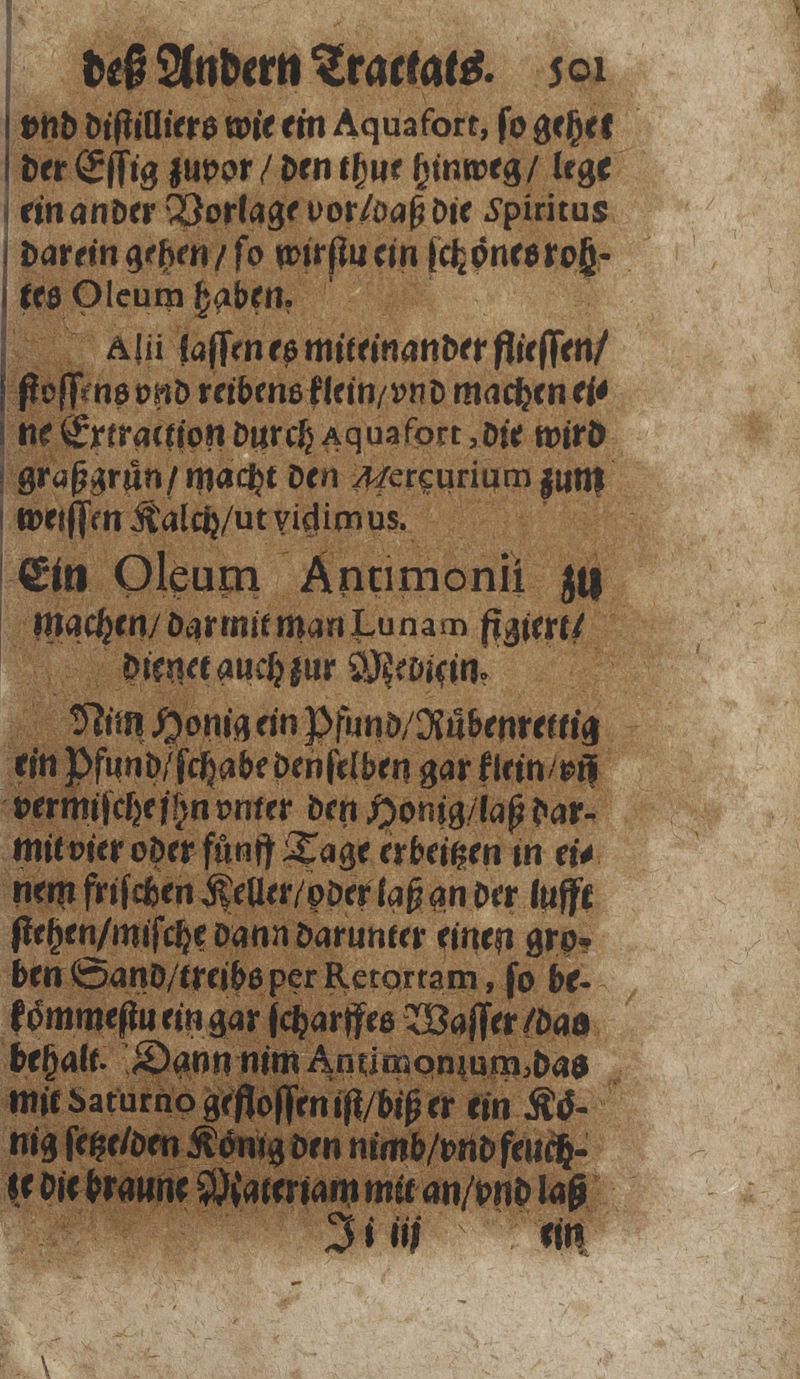 deß Andern Tractats. 501
vnd diſtilliers wie ein Aquafort, ſo gehet
der Eſſig zuvor / den thue hinweg / lege
ein ander Vorlage vor / daß die Spiritus
darein gehen / ſo wirſtu ein ſchoͤnes roh-
tes Oleum haben.
Alii laſſen es miteinander flieſſen /
ſtoſſens vnd reibens klein / vnd machen ei-
ne Extraction durch Aquafort, die wird
graßgruͤn / macht den Mercurium zum
weiſſen Kalch / ut vidimus.
Ein Oleum Antimonii zu
machen / darmit man Lunam figiert /
dienet auch zur Medicin.
Nim Honig ein Pfund / Ruͤbenrettig
ein Pfund / ſchabe denſelben gar klein / vñ
vermiſche jhn vnter den Honig / laß dar-
mit vier oder fuͤnff Tage erbeitzen in ei-
nem friſchen Keller / oder laß an der lufft
ſtehen / miſche dann darunter einen gro-
ben Sand / treibs per Retortam, ſo be-
koͤmmeſtu ein gar ſcharffes Waſſer / das
behalt. Dann nim Antimonium, das
mit Saturno gefloſſen iſt / biß er ein Koͤ-
nig ſetze / den Koͤnig den nimb / vnd feuch-
te die braune Materiam mit an / vnd laß
Ii iij ein